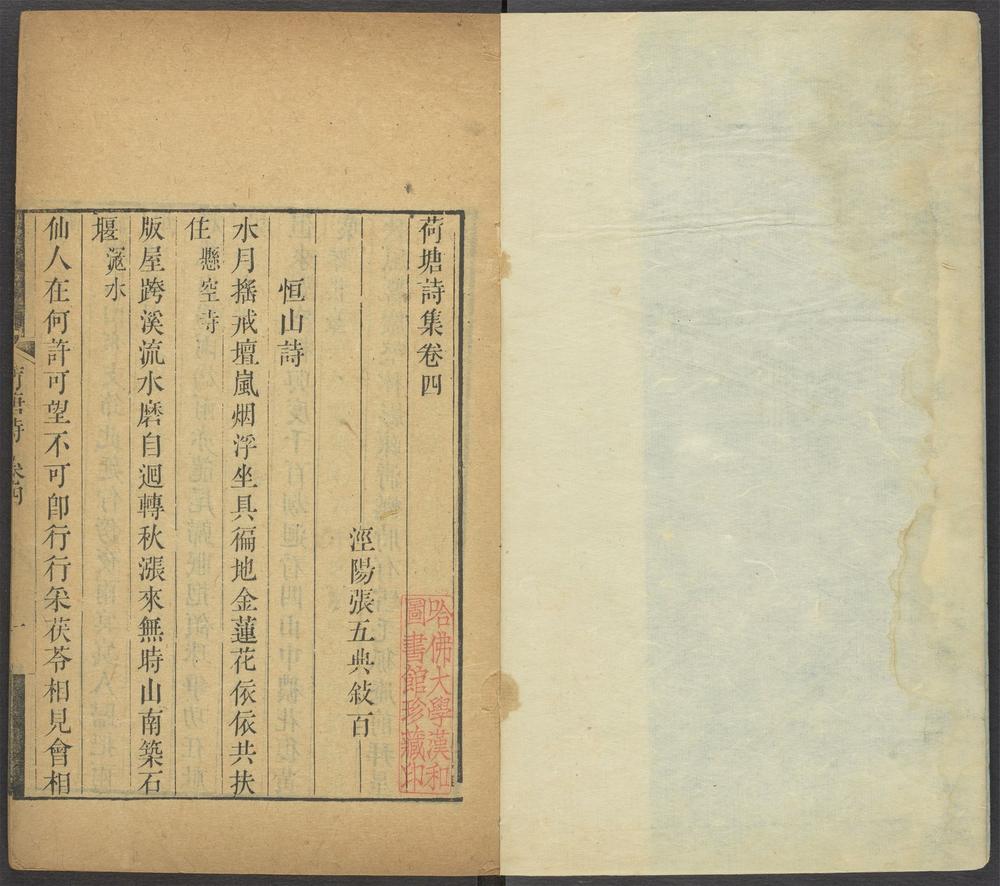 荷塘詩集卷四
涇陽張五典敍百
恒山詩
水月搖戒壇嵐烟浮坐具徧地金蓮花依依共扶
住懸空寺
版屋跨溪流水磨自迴轉秋漲來無時山南築石
堰滱水
仙人在何許可望不可卽行行采茯苓相見會相
荷塘詩 卷四
一
哈佛大學漢和
圖書館珍藏印